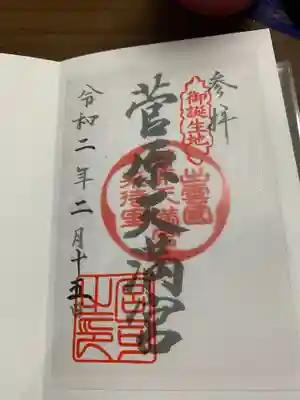 参拝
御誕生地
出雲國
菅原天満宮
令和二年二月十五日
宮司之印